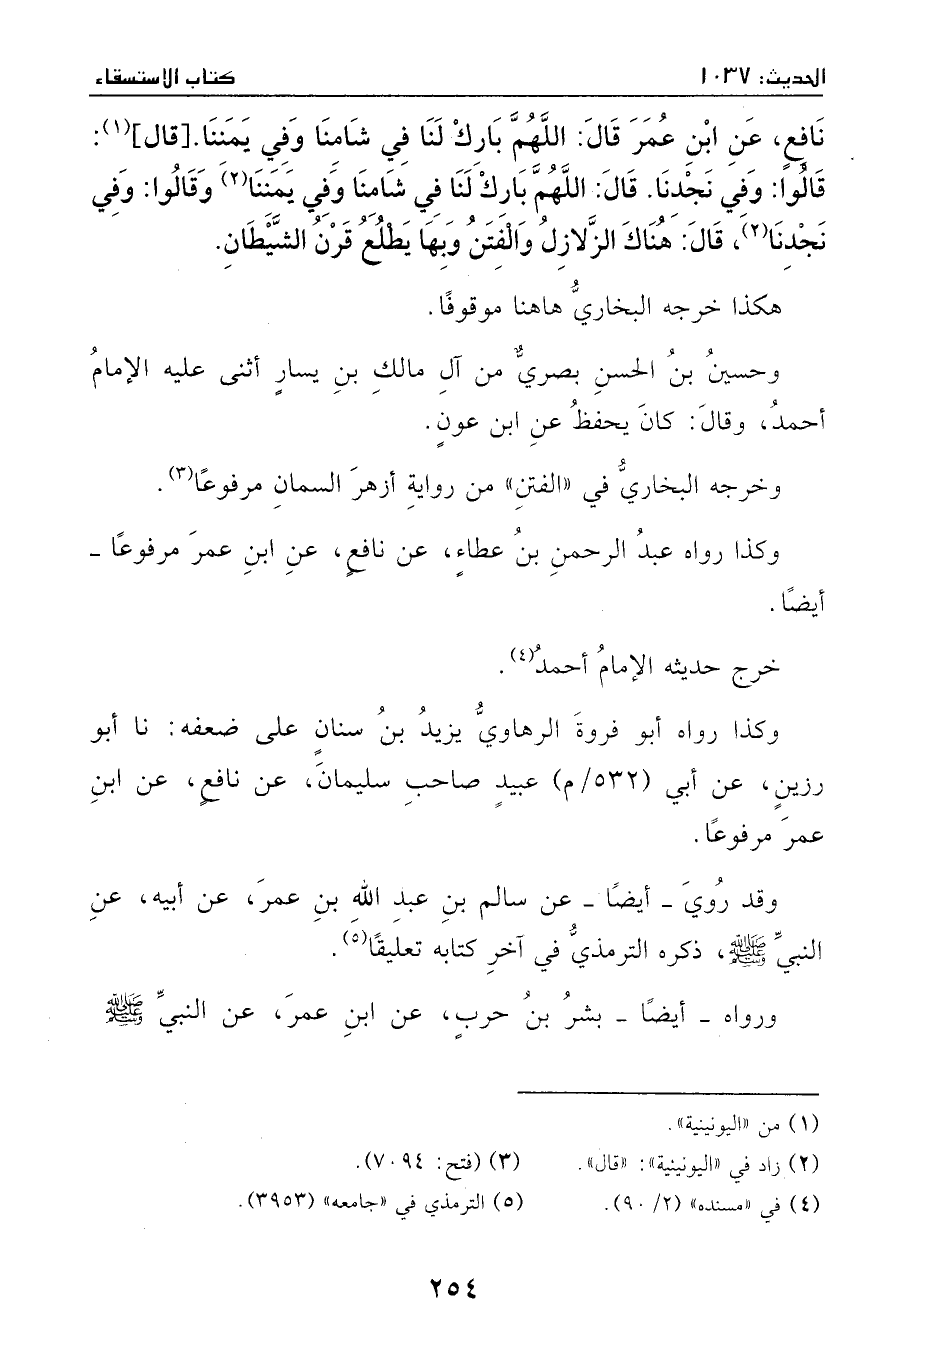 الحديث: ١٠٣٧ كتاب الاستسقاء
نَافِعٍ، عَنِ ابْنِ عُمَرَ قَالَ: اللَّهُمَّ بَارِكْ لَنَا فِي شَامِنَا وَفِي يَمَنِنَا. [قال](١):
قَالُوا: وَفِي نَجْدِنَا. قَالَ: اللَّهُمَّ بَارِكْ لَنَا فِي شَامِنَا وَفِي يَمَنِنَا(٢) وَقَالُوا: وَفِي
نَجْدِنَا(٢)، قَالَ: هُنَاكَ الزَّلَازِلُ وَالْفِتَنُ وَبِهَا يَطْلُعُ قَرْنُ الشَّيْطَانِ.
هكذا خرجه البخاريُّ هاهنا موقوفًا.
وحسينُ بنُ الحسنِ بصريٌّ من آلِ مالكِ بنِ يسارٍ أثنى عليه الإمامُ
أحمدُ، وقالَ: كانَ يحفظُ عنِ ابن عونٍ.
وخرجه البخاريُّ في «الفتنِ» من روايةِ أزهرَ السمانِ مرفوعًا(٣).
وكذا رواه عبدُ الرحمنِ بنُ عطاءٍ، عن نافعٍ، عنِ ابنِ عمرَ مرفوعًا ـ
أيضًا.
خرج حديثه الإمامُ أحمدُ(٤).
وكذا رواه أبو فروةَ الرهاويُّ يزيدُ بنُ سنانٍ على ضعفه: نا أبو
رزينٍ، عن أبي (٥٣٢/م) عبيدٍ صاحبِ سليمانَ، عن نافعٍ، عن ابنِ
عمرَ مرفوعًا.
وقد رُويَ ـ أيضًا ـ عن سالم بنِ عبدِ اللهِ بنِ عمرَ، عن أبيه، عنِ
النبيِّ ﷺ، ذكره الترمذيُّ في آخرِ كتابه تعليقًا(٥).
ورواه ـ أيضًا ـ بشرُ بنُ حربٍ، عن ابنِ عمرَ، عن النبيِّ ﷺ
(١) من «اليونينية».
(٢) زاد في «اليونينية»: «قال». (٣) (فتح: ٧٠٩٤).
(٤) في «مسنده» (٢/ ٩٠). (٥) الترمذي في «جامعه» (٣٩٥٣).
٢٥٤